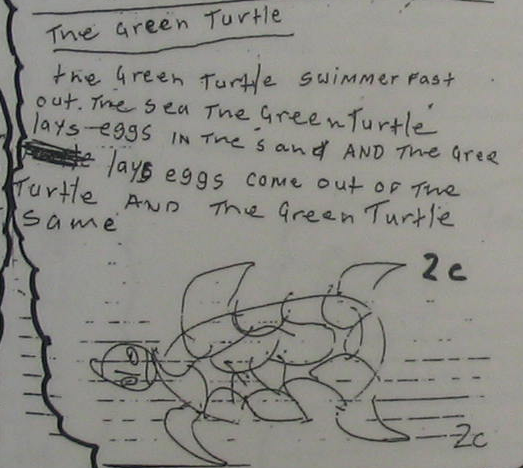 The Green Turtle
the Green Turtle swimmer Fast
out. The sea The Green Turtle
lays eggs IN The sand AND The Gree
lays eggs come out of The
Turtle AND The Green Turtle
Same
2c
2c